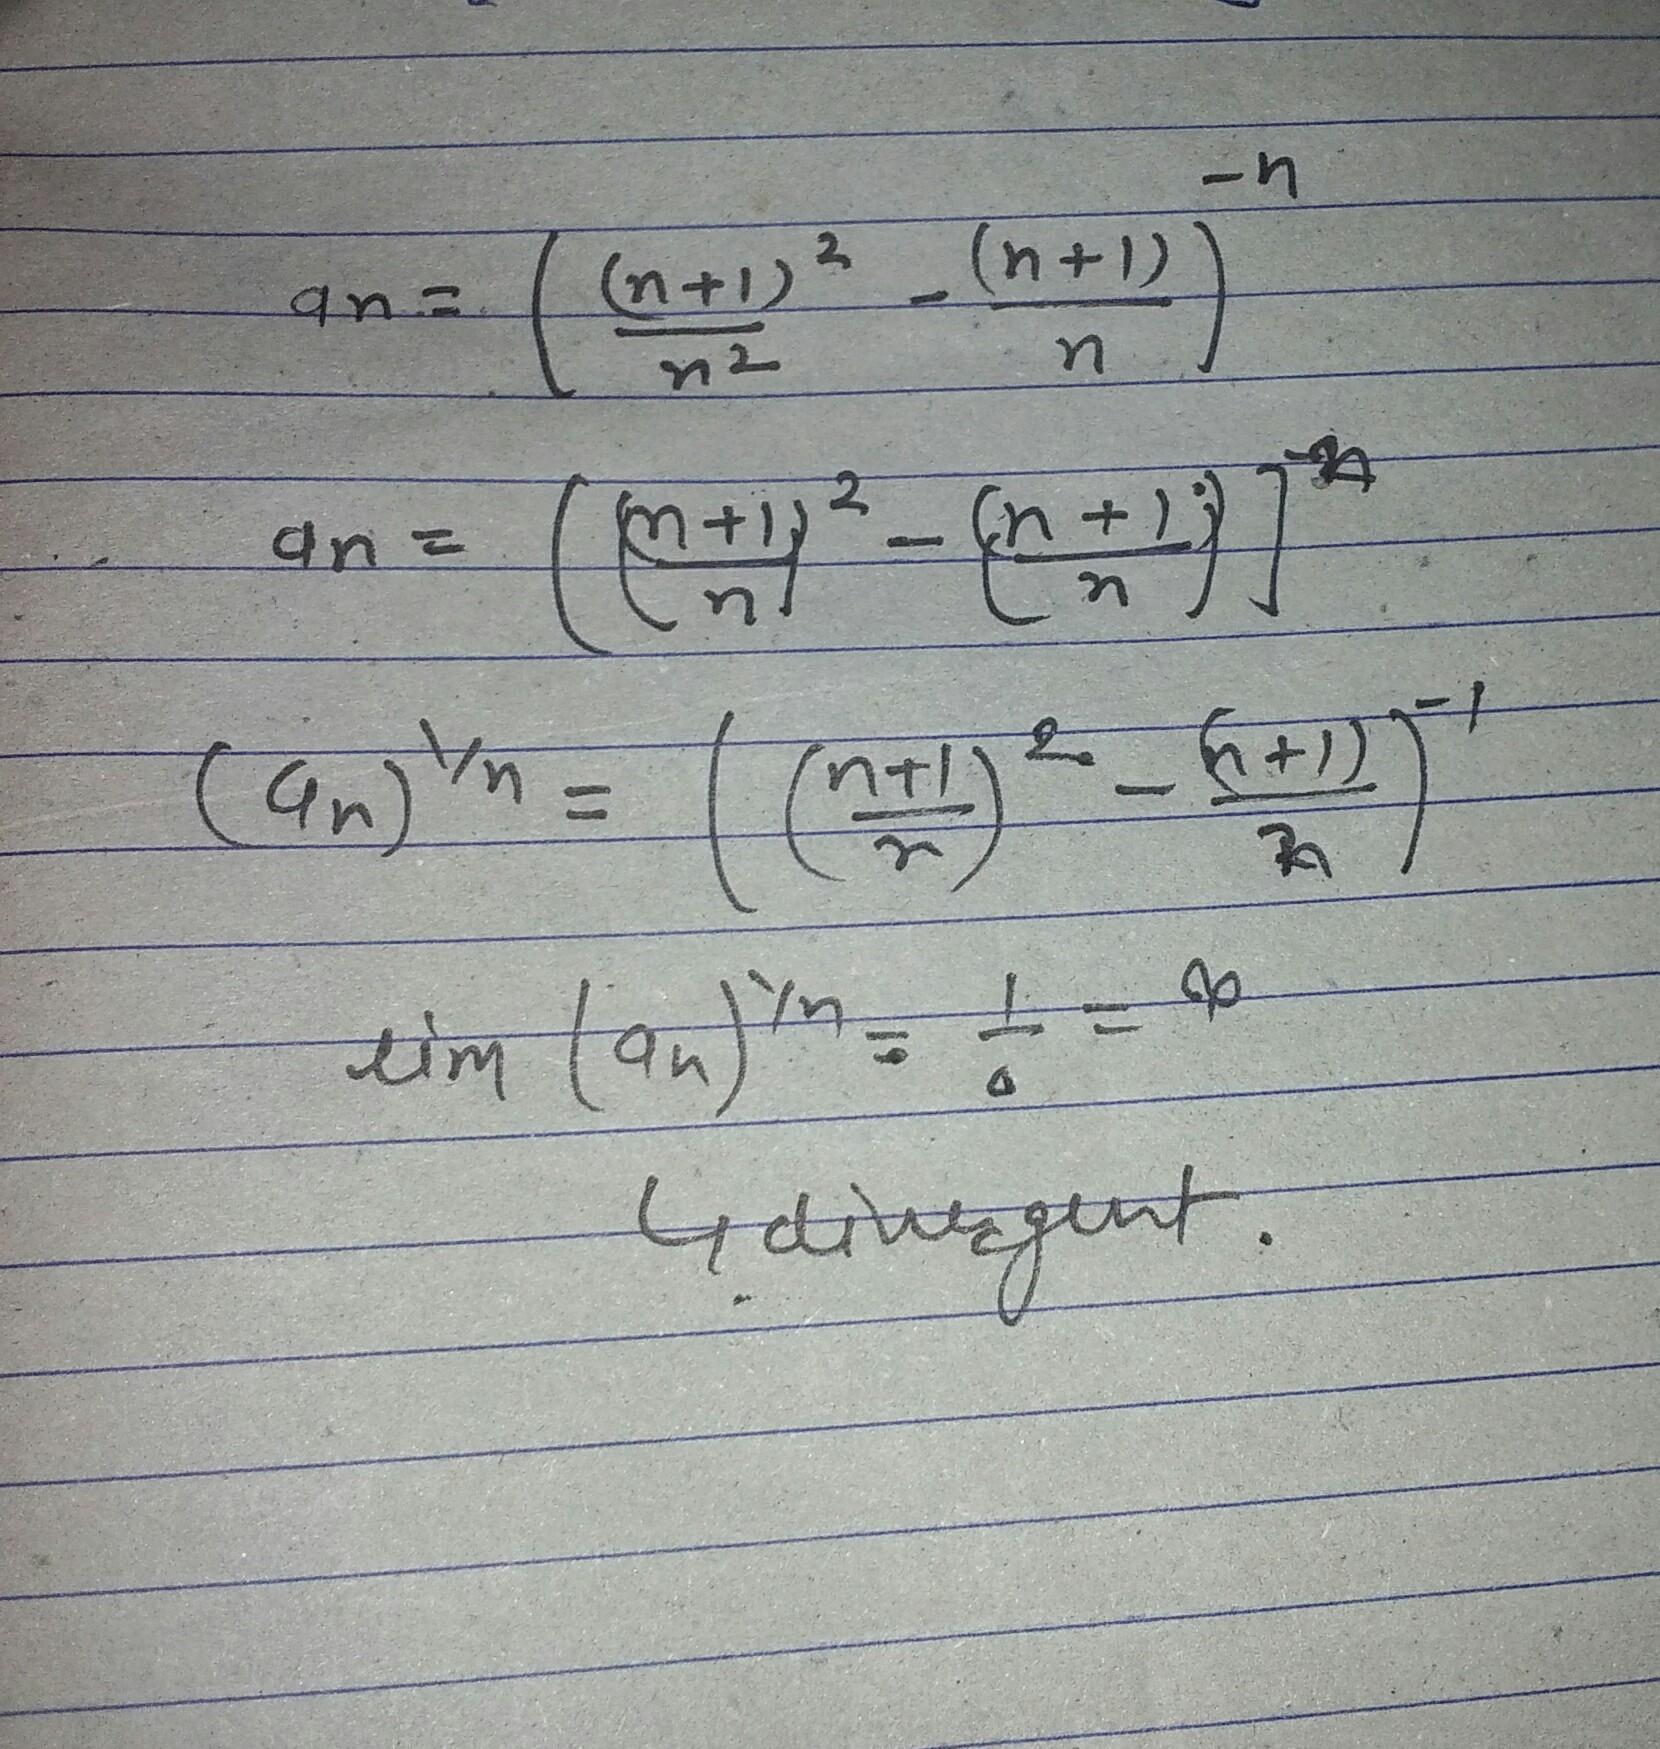 an = ( (n+1)² / n² - (n+1) / n )^-n
an = [ ( (n+1) / n )² - ( (n+1) / n ) ]^-n
(an)^1/n = ( ( n+1 / n )² - (n+1) / n )^-1
lim (an)^1/n = 1/0 = ∞
↳ divergent.